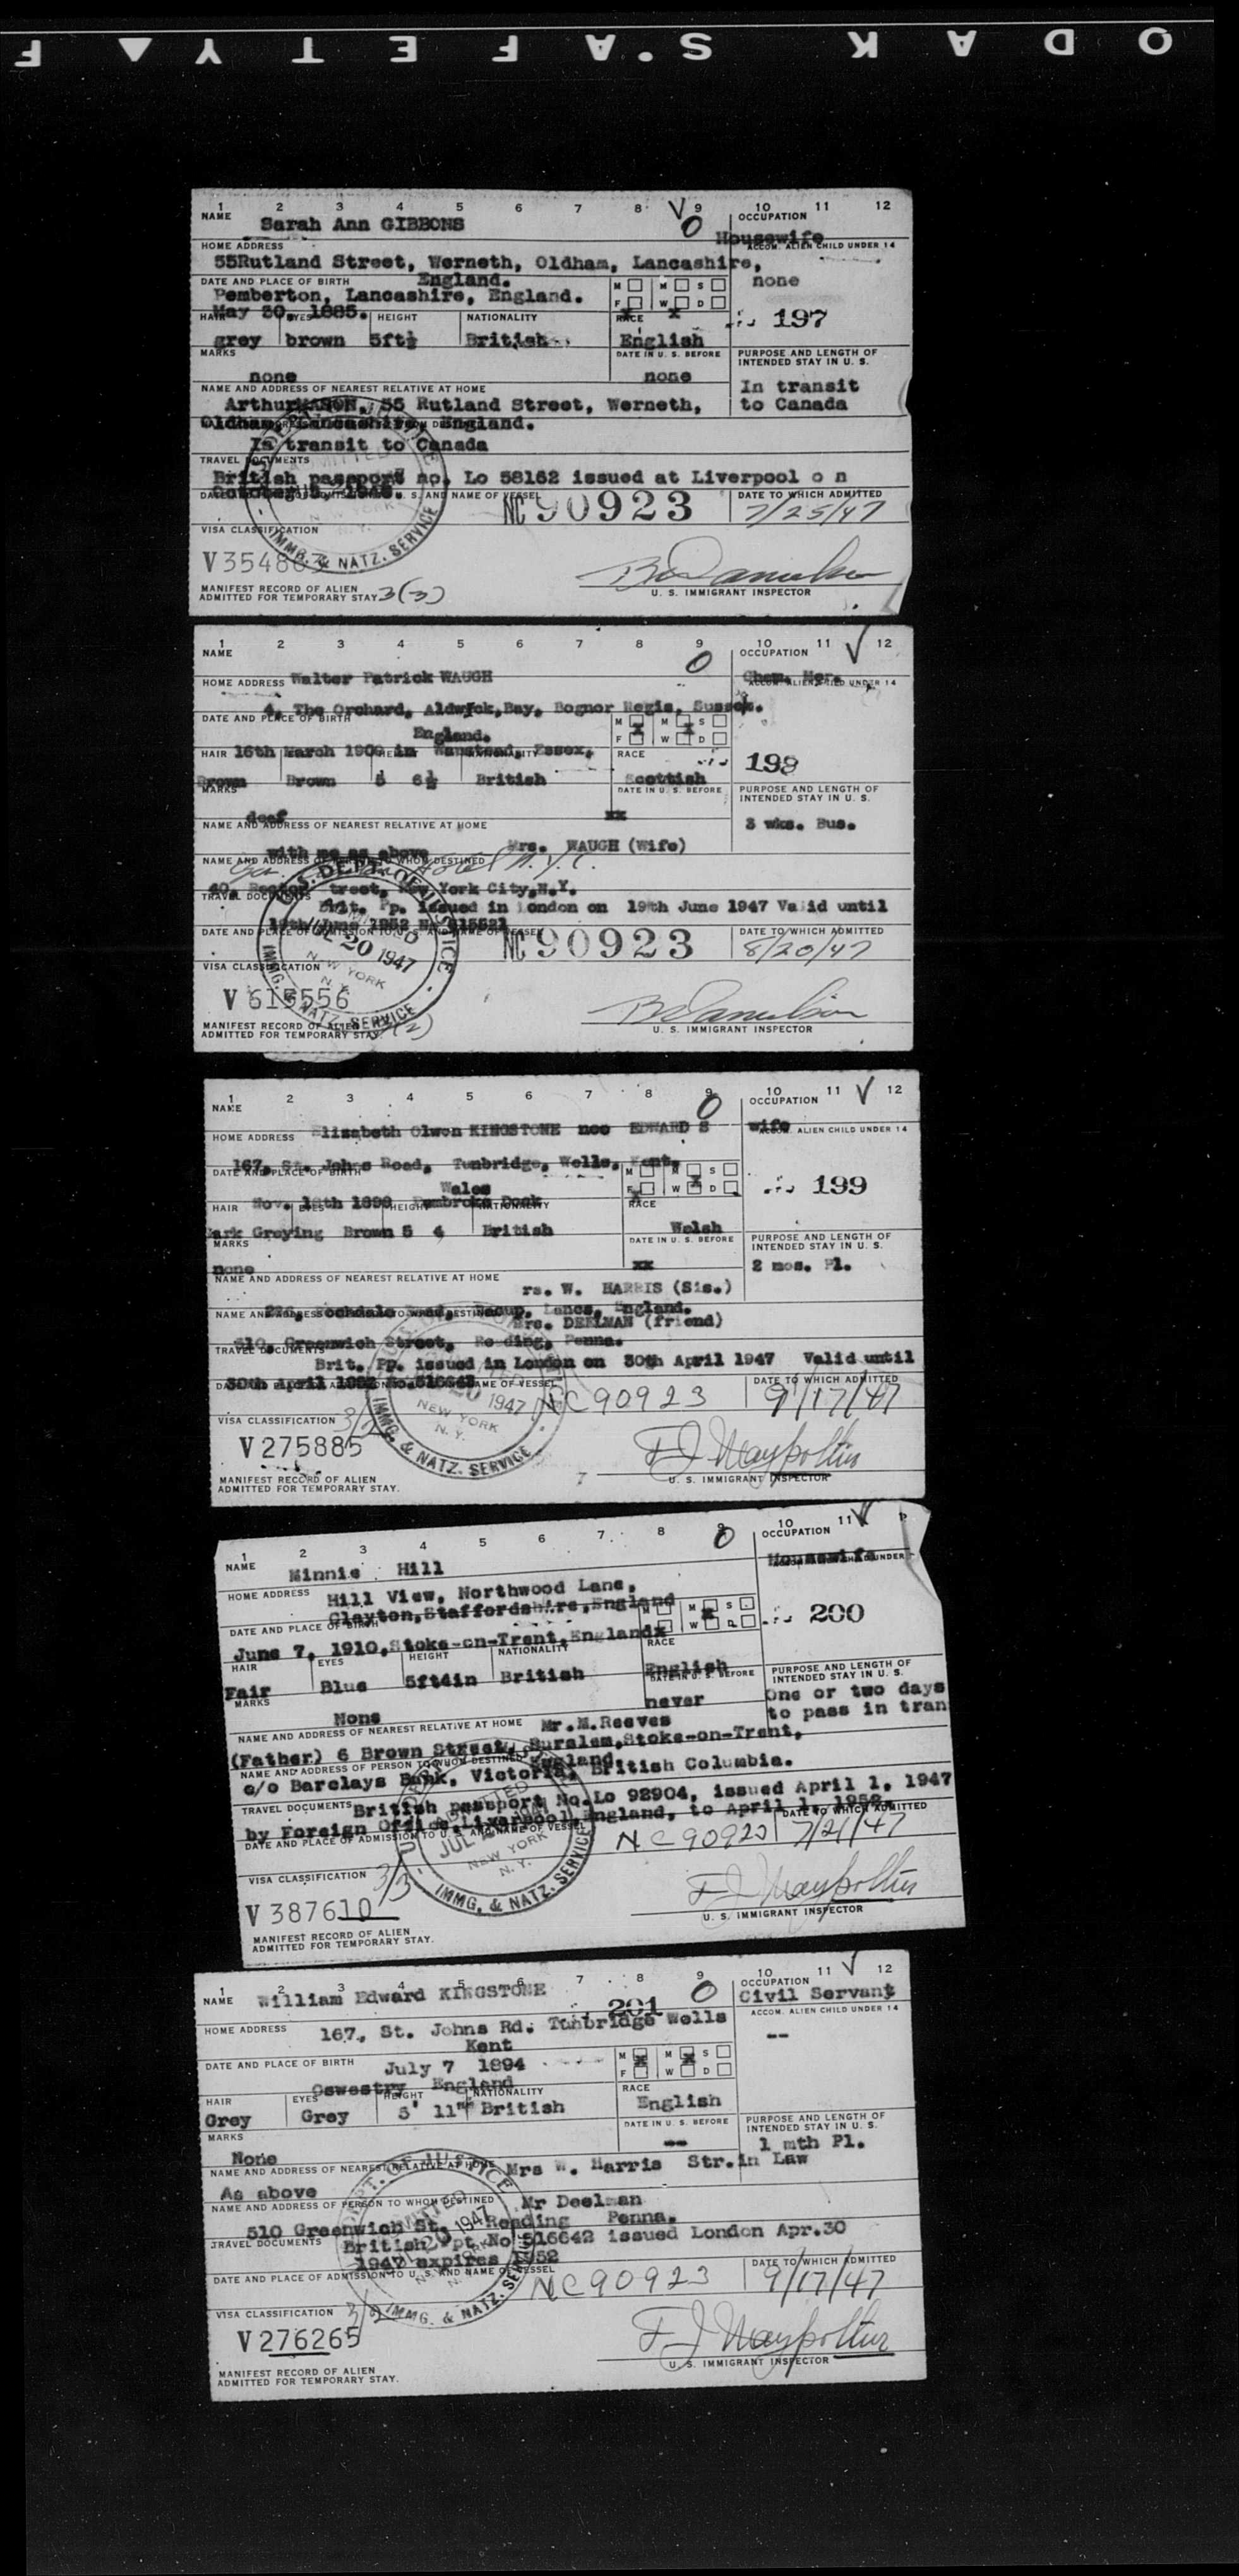 KODAK SAFETY F
1 2 3 4 5 6 7 8 9 10 11 12
NAME Sarah Ann GIBBONS 0 OCCUPATION
Housewife
HOME ADDRESS ACCOM. ALIEN CHILD UNDER 14
55Rutland Street, Werneth, Oldham, Lancashire,
England. none
DATE AND PLACE OF BIRTH M M S
Pemberton, Lancashire, England. F W D
May 30, 1885. 197
HAIR EYES HEIGHT NATIONALITY RACE
grey brown 5ft½ British English
MARKS DATE IN U. S. BEFORE PURPOSE AND LENGTH OF INTENDED STAY IN U. S.
none none In transit
NAME AND ADDRESS OF NEAREST RELATIVE AT HOME
Arthur MASON, 55 Rutland Street, Werneth, to Canada
Oldham, Lancashire, England.
In transit to Canada
TRAVEL DOCUMENTS
British passport no. Lo 58162 issued at Liverpool o n
NC 90923 DATE TO WHICH ADMITTED
7/25/47
VISA CLASSIFICATION
IMMG. & NATZ. SERVICE
MANIFEST RECORD OF ALIEN
ADMITTED FOR TEMPORARY STAY 3(3) U. S. IMMIGRANT INSPECTOR
1 2 3 4 5 6 7 8 9 10 11 12
NAME 0 OCCUPATION
HOME ADDRESS Walter Patrick WAUGH Chem. Mer.
ACCOM. ALIEN CHILD UNDER 14
4, The Orchard, Aldwick,Bay, Bognor Regis, Sussex.
DATE AND PLACE OF BIRTH M M S
England. F W D
HAIR 16th March HEIGHT in Wanstead, Essex. RACE 198
Brown Brown 5 6½ British Scottish
MARKS DATE IN U. S. BEFORE PURPOSE AND LENGTH OF INTENDED STAY IN U. S.
deaf xx 3 wks. Bus.
NAME AND ADDRESS OF NEAREST RELATIVE AT HOME
with me as above Mrs. WAUGH (Wife)
NAME AND ADDRESS OF PERSON TO WHOM DESTINED Hotel N.Y.C.
40, Rector treet, New York City,N.Y.
TRAVEL DOCUMENTS Brit. Pp. issued in London on 19th June 1947 Valid until
19th June 1952
DATE AND PLACE OF ADMISSION TO U. S. AND NAME OF VESSEL NC 90923 DATE TO WHICH ADMITTED
8/20/47
U.S. DEPT. OF JUSTICE ADMITTED JUL 20 1947 NEW YORK N.Y. IMMG. & NATZ. SERVICE
VISA CLASSIFICATION
V 615556
MANIFEST RECORD OF ALIEN
ADMITTED FOR TEMPORARY STAY. U. S. IMMIGRANT INSPECTOR
1 2 3 4 5 6 7 8 9 10 11 12
NAME 0 OCCUPATION
HOME ADDRESS Elizabeth Olwen KINGSTONE nee EDWARD S wife
ACCOM. ALIEN CHILD UNDER 14
167, St. Johns Road, Tunbridge, Wells, Kent.
DATE AND PLACE OF BIRTH M M S
Wales F W D
199
HAIR Nov. Pembroke Dock RACE
Dark Greying Brown 5 4 British Welsh
MARKS DATE IN U. S. BEFORE PURPOSE AND LENGTH OF INTENDED STAY IN U. S.
none xx 2 mos. Pl.
NAME AND ADDRESS OF NEAREST RELATIVE AT HOME
rs. W. HARRIS (Sis.)
Rochdale Road, Bacup, Lancs, England.
Mrs. DEELMAN (friend)
510, Greenwich Street, Reading, Penna.
TRAVEL DOCUMENTS
Brit. Pp. issued in London on 30th April 1947 Valid until
30th April 1952 NAME OF VESSEL DATE TO WHICH ADMITTED
1947 NC90923 9/17/47
NEW YORK N. Y. IMMG. & NATZ. SERVICE
VISA CLASSIFICATION 3/2
V 275885
MANIFEST RECORD OF ALIEN
ADMITTED FOR TEMPORARY STAY. U. S. IMMIGRANT INSPECTOR
1 2 3 4 5 6 7 8 9 10 11
NAME Minnie Hill 0 OCCUPATION
Housewife
HOME ADDRESS Hill View, Northwood Lane,
Clayton,Staffordshire,England
DATE AND PLACE OF BIRTH M M S
F W D 200
June 7, 1910,Stoke-on-Trent,England
HAIR EYES HEIGHT NATIONALITY RACE
Fair Blue 5ft4in British English
MARKS DATE IN U. S. BEFORE PURPOSE AND LENGTH OF INTENDED STAY IN U. S.
None never One or two days
to pass in tran
NAME AND ADDRESS OF NEAREST RELATIVE AT HOME Mr.M.Reeves
(Father) 6 Brown Street, Burslem,Stoke-on-Trent,
England.
NAME AND ADDRESS OF PERSON TO WHOM DESTINED
c/o Barclays Bank, Victoria, British Columbia.
TRAVEL DOCUMENTS British passport No.Lo 92904, issued April 1, 1947
by Foreign Office,Liverpool,England, to April 1, 1952.
DATE AND PLACE OF ADMISSION TO U. S. AND NAME OF VESSEL DATE TO WHICH ADMITTED
NC90923 7/21/47
ADMITTED JUL NEW YORK N. Y. IMMG. & NATZ. SERVICE
VISA CLASSIFICATION 3/3
V 387610
MANIFEST RECORD OF ALIEN
ADMITTED FOR TEMPORARY STAY. U. S. IMMIGRANT INSPECTOR
1 2 3 4 5 6 7 8 9 10 11 12
NAME William Edward KINGSTONE 0 OCCUPATION
201 Civil Servant
HOME ADDRESS 167, St. Johns Rd. Tunbridge Wells ACCOM. ALIEN CHILD UNDER 14
Kent --
DATE AND PLACE OF BIRTH July 7 1894 M M S
Oswestry England F W D
HAIR EYES HEIGHT NATIONALITY RACE
Grey Grey 5' 11" British English
MARKS DATE IN U. S. BEFORE PURPOSE AND LENGTH OF INTENDED STAY IN U. S.
None -- 1 mth Pl.
NAME AND ADDRESS OF NEAREST RELATIVE AT HOME Mrs W. Harris Str.in Law
As above
NAME AND ADDRESS OF PERSON TO WHOM DESTINED Mr Deelman
510 Greenwich St. Reading Penna.
TRAVEL DOCUMENTS British Ppt No 516642 issued London Apr.30
1947 expires 1952
DATE AND PLACE OF ADMISSION TO U. S. AND NAME OF VESSEL DATE TO WHICH ADMITTED
NC90923 9/17/47
DEPT. OF JUSTICE ADMITTED 20 1947 IMMG. & NATZ. SERVICE
VISA CLASSIFICATION 3/2
V 276265
MANIFEST RECORD OF ALIEN
ADMITTED FOR TEMPORARY STAY. U. S. IMMIGRANT INSPECTOR